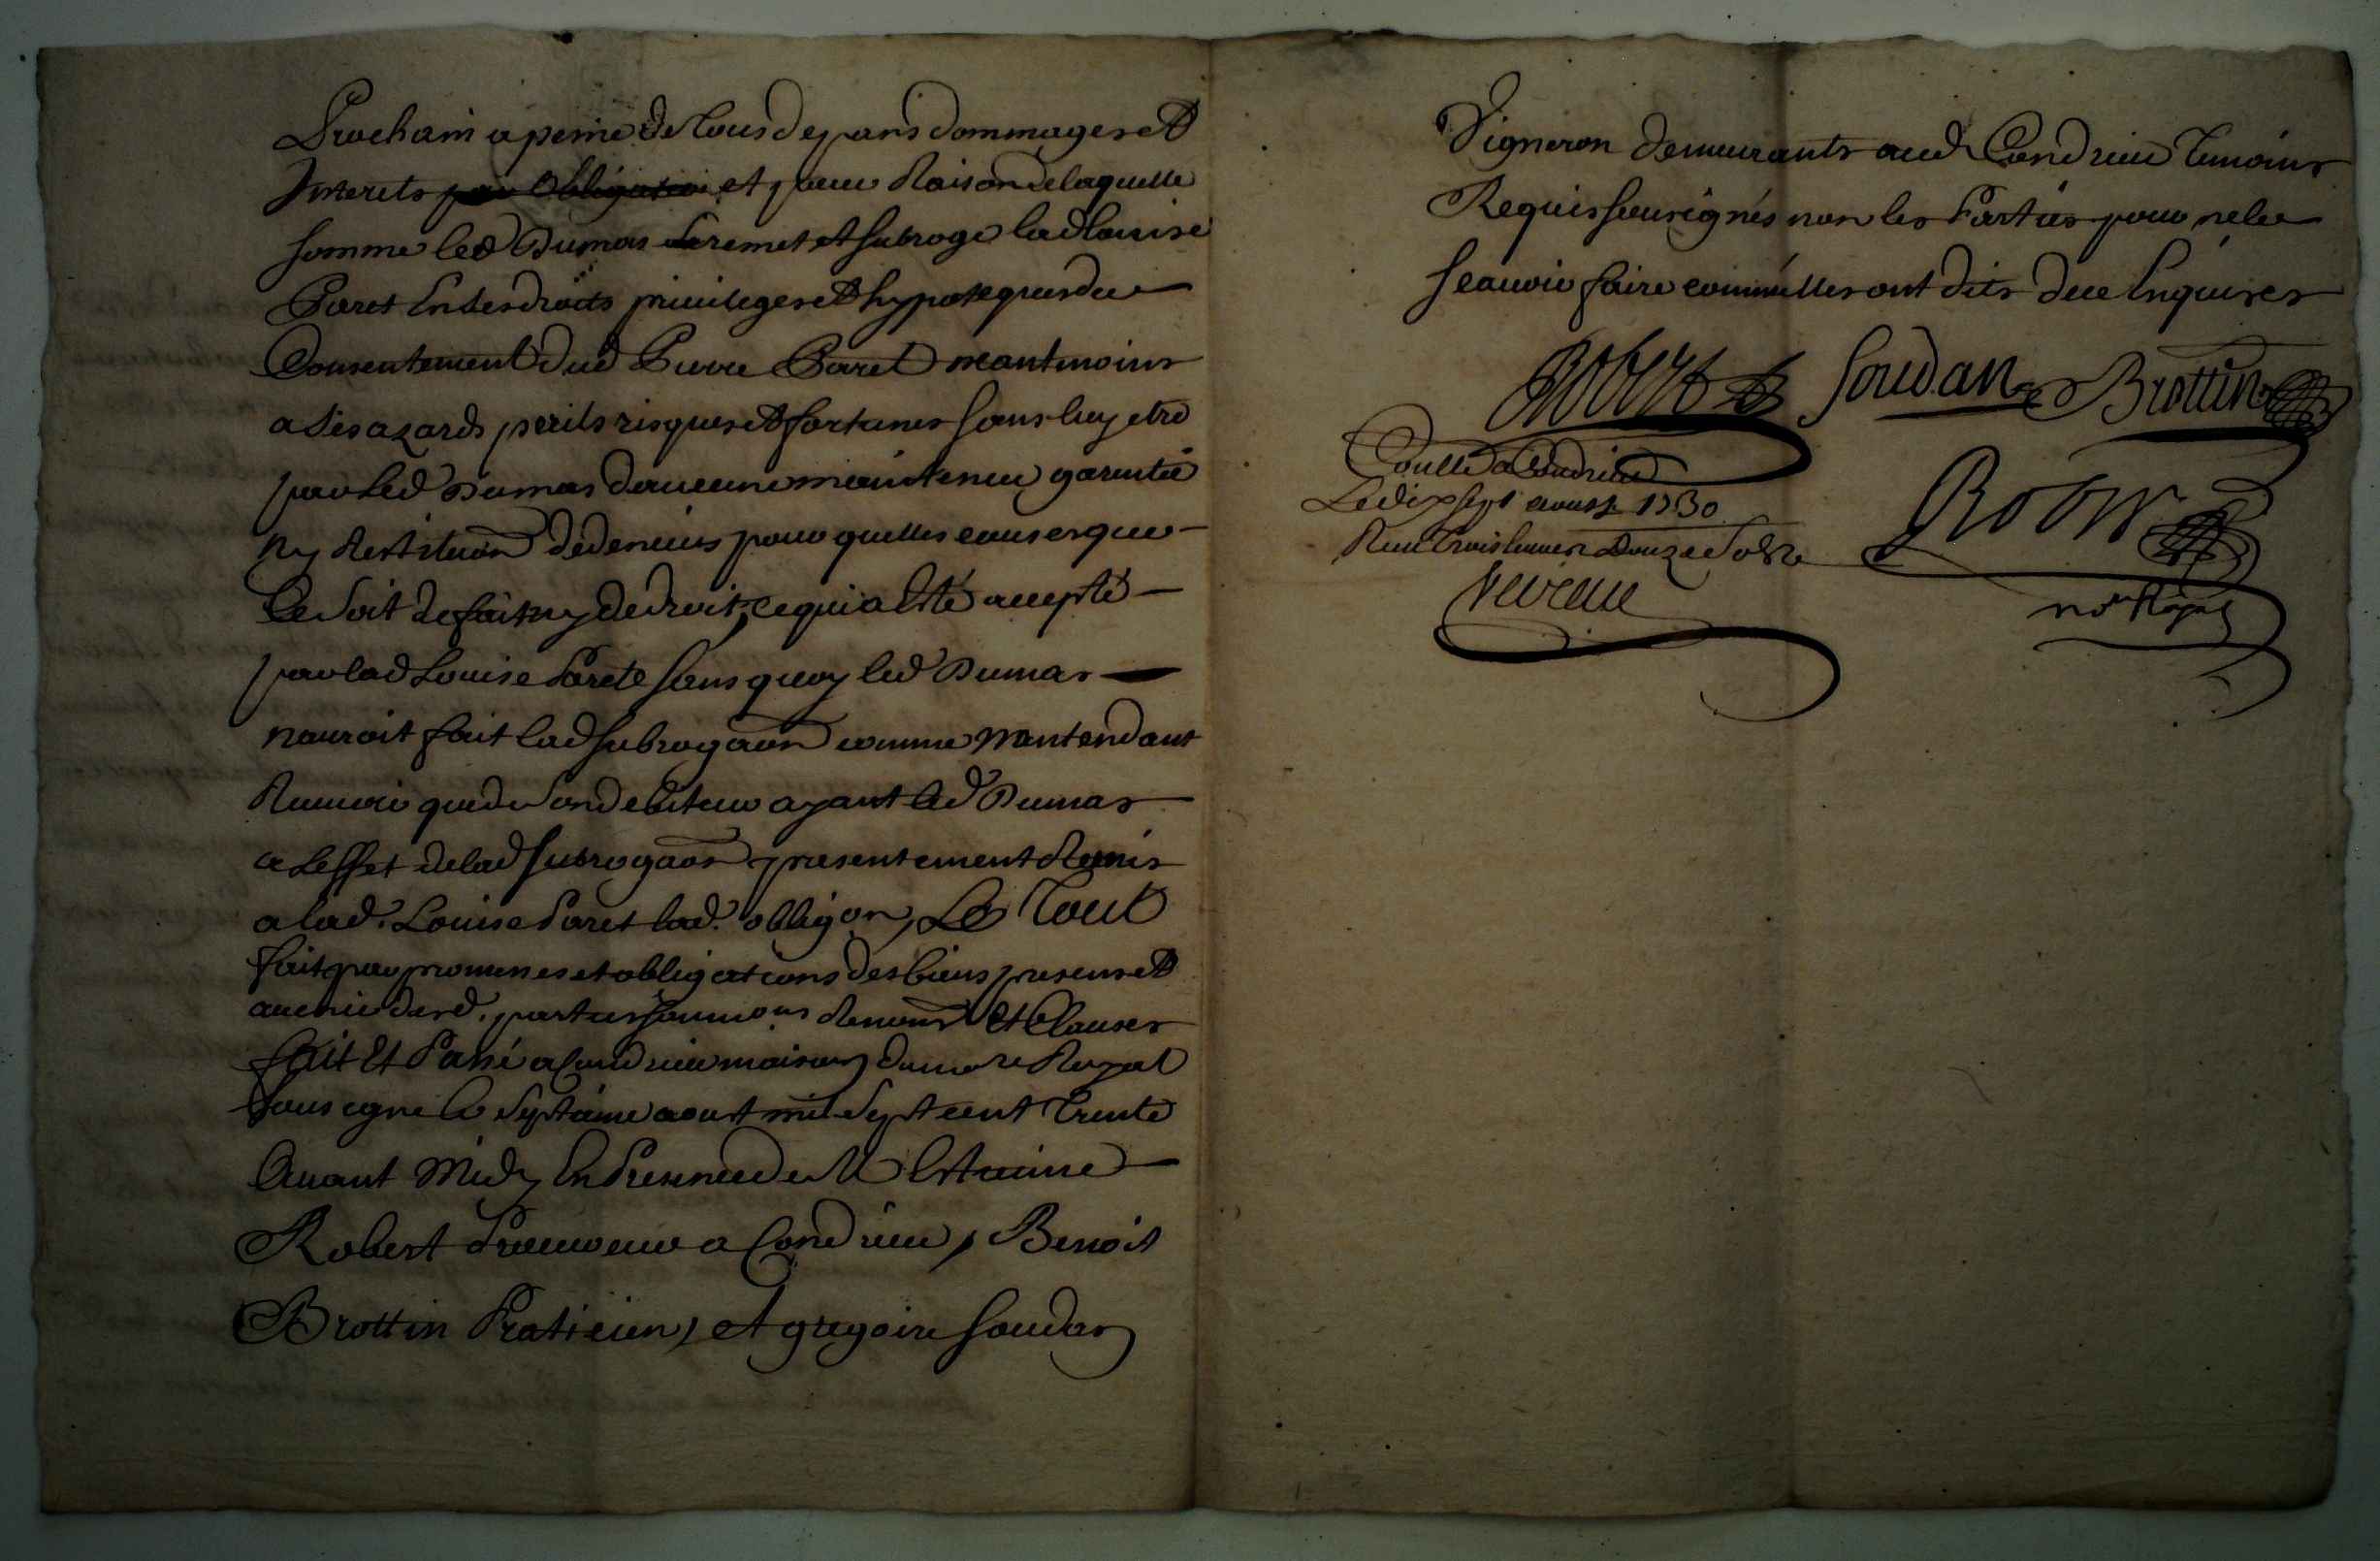 Prochain a peine de tous depans dommages et
Interets par obligation et pour Raison de laquelle
somme led Dumas remet et subroge lad Louise
Paret en ses droits privileges et hypoteques du
Consentement dud Pierre Paret neantmoins
a ses azards perils risques et fortunes sans luy etre
par led Dumas d'aucune maintenue garentie
ny Restituon de deniers pour quelles causes que
ce soit de fait ny de droit, ce qui a esté accepté
par lad Louise Parete sans quoy led Dumas
nauroit fait lad subrogaon comme nentendant
que de son debiteur ayant led Dumas
a Leffet de lad subrogaon presentement Remis
a lad. Louise Paret lad. obligon, Le Tout
fait par promesses et obligations des biens presens et
avenir desd. parties soumions Renons et Clauses
fait Et Passé a Condrieu maison du nore Royal
soussigné le septiéme aoust mil sept cent Trente
Avant Midy En Presence de Me
Robert Procureur a Condrieu, Benoit
Brottin Praticien, et gregoire soudan
Vigneron demeurants aud Condrieu Temoins
Requis soussignés non les Parties pour ne le
scauoir faire comme elles ont dits de ce Enquises
Robert Soudan Brottin
Conlle a Condrieu
Le dix sept aoust 1730
Reçu trois livres Douze sols
Robert
nore Royal